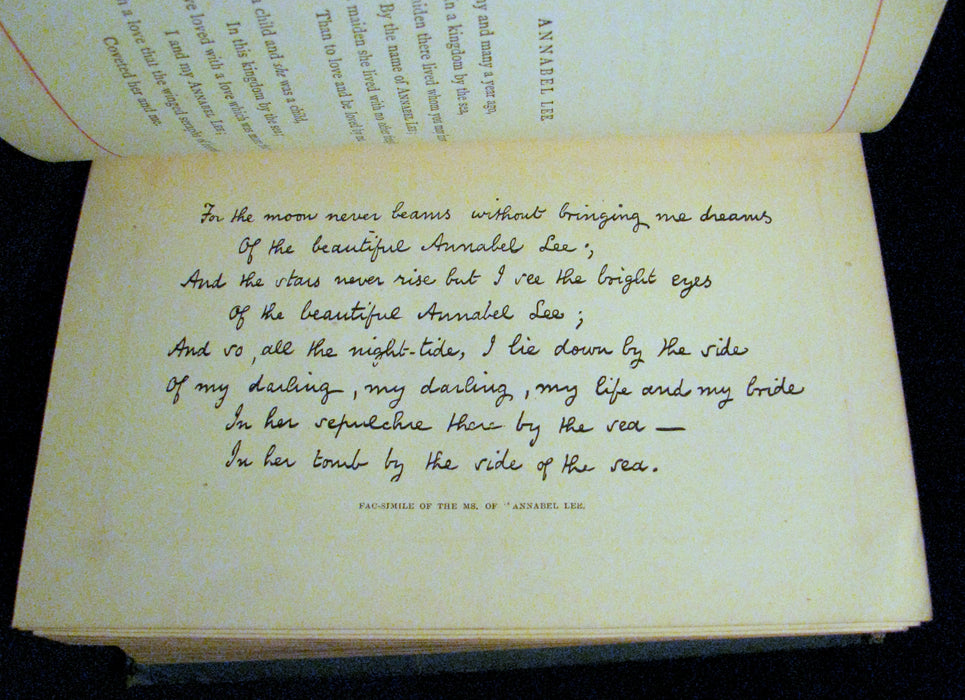 ANNABEL LEE
and many a year ago,
n a kingdom by the sea,
there lived whom
By the name of ANNABEL LEE;
maiden she lived with no other
Than to love and be loved by
a child and she was a child,
In this kingdom by the sea;
loved with a love which was
I and my ANNABEL LEE;
a love that the winged seraphs of
Coveted her and me.
For the moon never beams without bringing me dreams
Of the beautiful Annabel Lee;
And the stars never rise but I see the bright eyes
Of the beautiful Annabel Lee;
And so, all the night-tide, I lie down by the side
Of my darling, my darling, my life and my bride
In her sepulchre there by the sea —
In her tomb by the side of the sea.
FAC-SIMILE OF THE MS. OF "ANNABEL LEE.